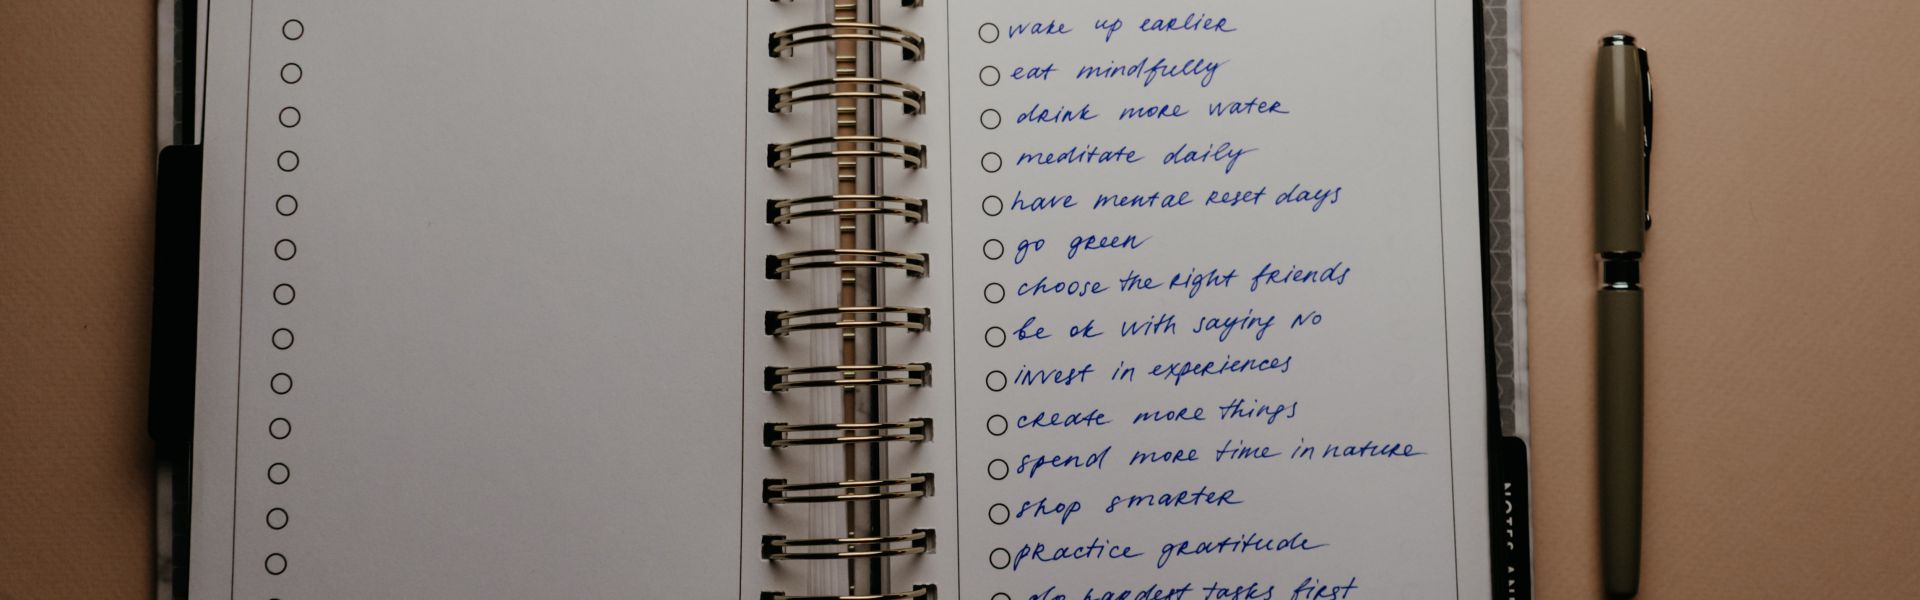 wake up earlier
eat mindfully
drink more water
meditate daily
have mental reset days
go green
choose the right friends
be ok with saying no
invest in experiences
create more things
spend more time in nature
shop smarter
practice gratitude
do hardest tasks first
NOTES AND